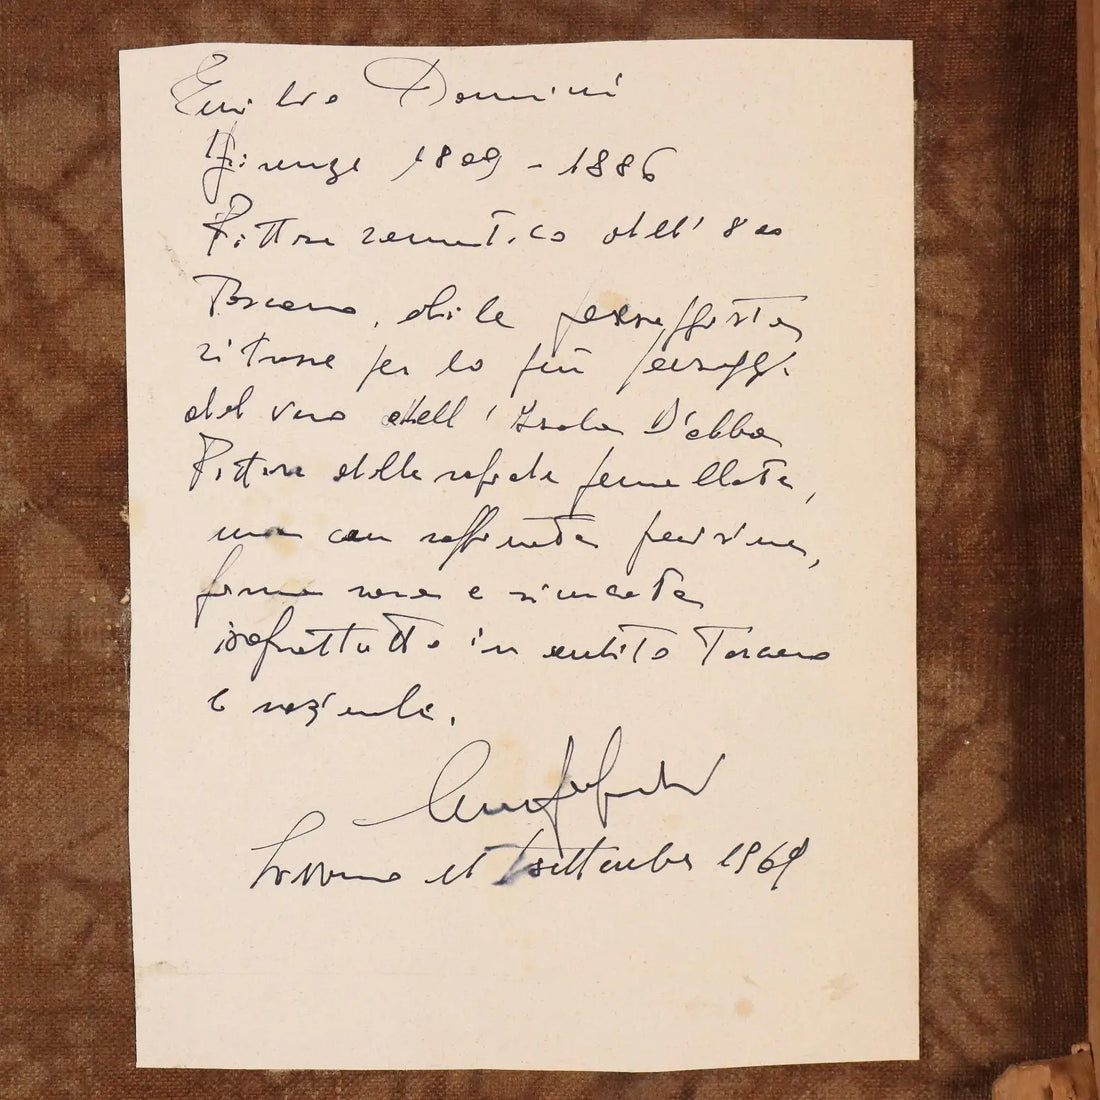 Emilio Donnini
Firenze 1809 - 1886
Pittore romantico dell'800
Toscano, abile paesaggista
ritrae per lo più paesaggi
del vero dell'Isola D'elba
Pittore dalla rapida pennellata,
ma con raffinata
forma rara e ricercata
soprattutto in ambito Toscano
e nazionale.
Livorno il 7 settembre 1969